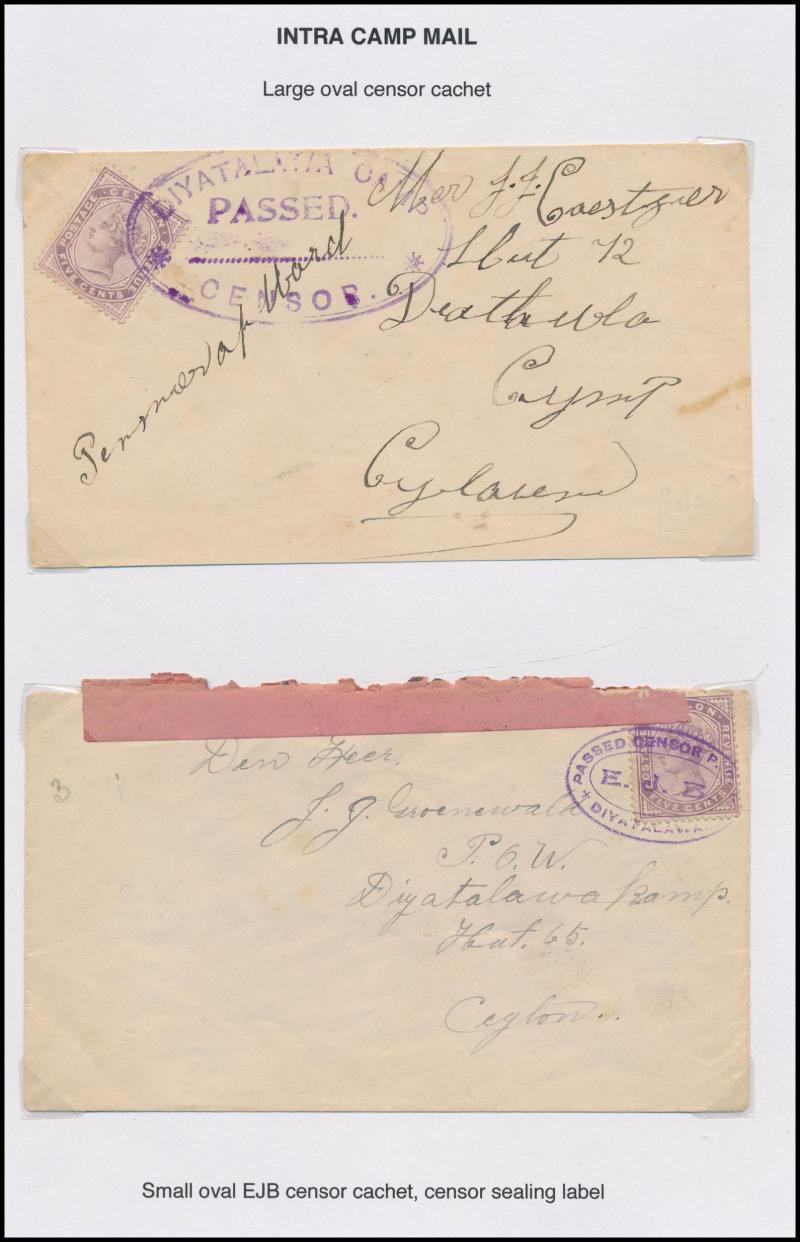 INTRA CAMP MAIL
Large oval censor cachet
POSTAGE CEYLON REVENUE
FIVE CENTS
DIYATALAWA CAMP
PASSED.
* CENSOR. *
Mer J. J. Coestzer
Hut 72
Deathawla
Cymp
Cylawend
Prisnnerd of Word
PASSED CENSOR P.
E. J. B
+ DIYATALAWA
FIVE CENTS
Den Heer,
J. J. Groenewald
P. O. W.
Diyatalawa kamp.
Hut. 65.
Ceylon..
3
Small oval EJB censor cachet, censor sealing label